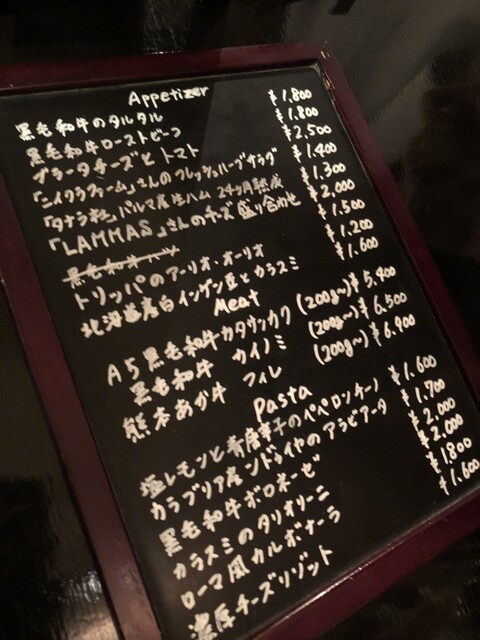 Appetizer
黒毛和牛のタルタル ¥1.800
黒毛和牛ローストビーフ ¥1.800
ブラータチーズとトマト ¥2.500
「ニイクラファーム」さんのフレッシュハーブサラダ ¥1.400
「タナラ社」パルマ産生ハム 24ヶ月熟成 ¥1.300
「LAMMAS」さんのチーズ盛り合わせ ¥2.000
黒毛和牛ハツ ¥1.500
トリッパのアーリオ・オーリオ ¥1.200
北海道産白インゲン豆とカラスミ ¥1.600
Meat
A5黒毛和牛カタサンカク (200g〜) ¥5.400
黒毛和牛 カイノミ (200g〜) ¥6.500
熊本あか牛 フィレ (200g〜) ¥6.900
Pasta
塩レモンと青唐辛子のペペロンチーノ ¥1.600
カラブリア産ンドゥイヤのアラビアータ ¥1.700
黒毛和牛ボロネーゼ ¥2.000
カラスミのタリオリーニ ¥2.000
ローマ風カルボナーラ ¥1800
濃厚チーズリゾット ¥1.600